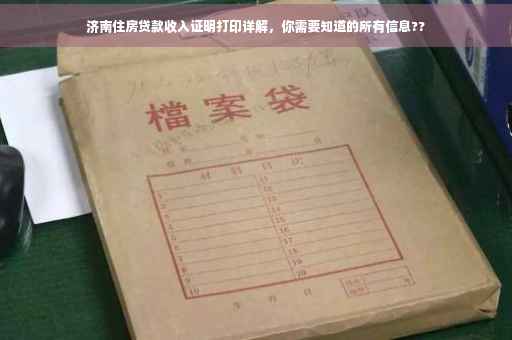 济南住房贷款收入证明打印详解，你需要知道的所有信息??
檔案袋
材料目次
1 11
2 12
3 13
4 14
5 15
6 16
7 17
8 18
9 19
10 20
年 月 日